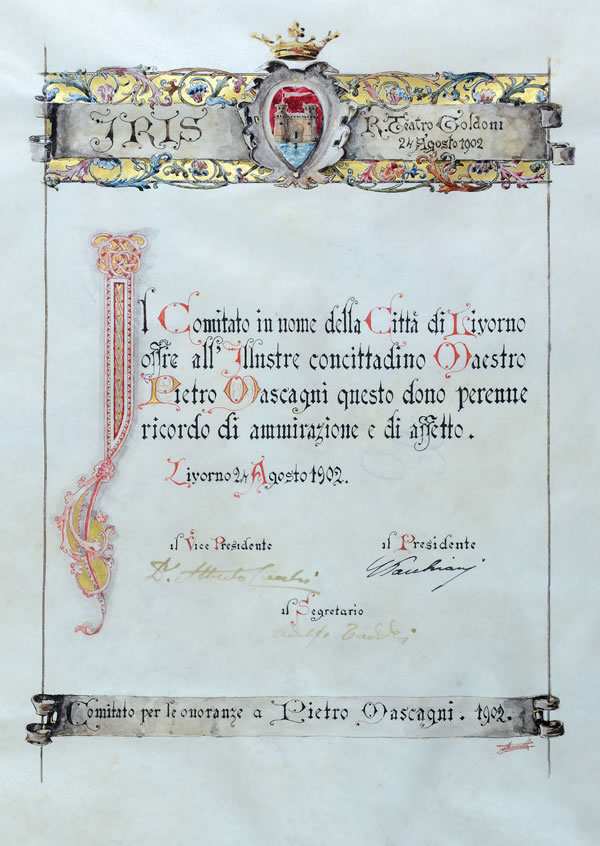 IRIS
R. Teatro Goldoni
24 Agosto 1902
Il Comitato in nome della Città di Livorno
offre all'Illustre concittadino Maestro
Pietro Mascagni questo dono perenne
ricordo di ammirazione e di affetto.
Livorno 24 Agosto 1902.
il Vice Presidente
il Presidente
Dr. Alberto
il Segretario
Adolfo
Comitato per le onoranze a Pietro Mascagni. 1902.